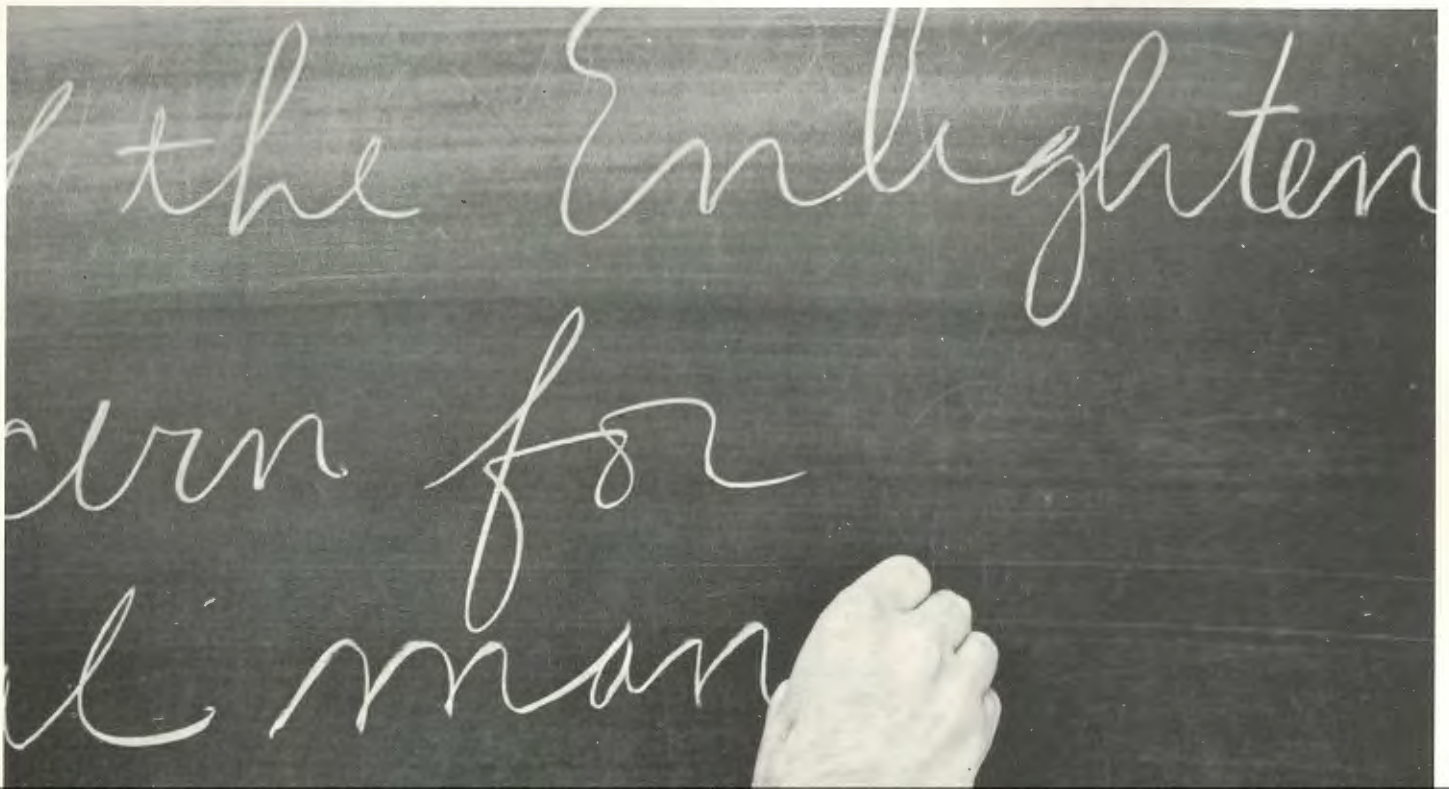 the Enlighten
cern for
al man